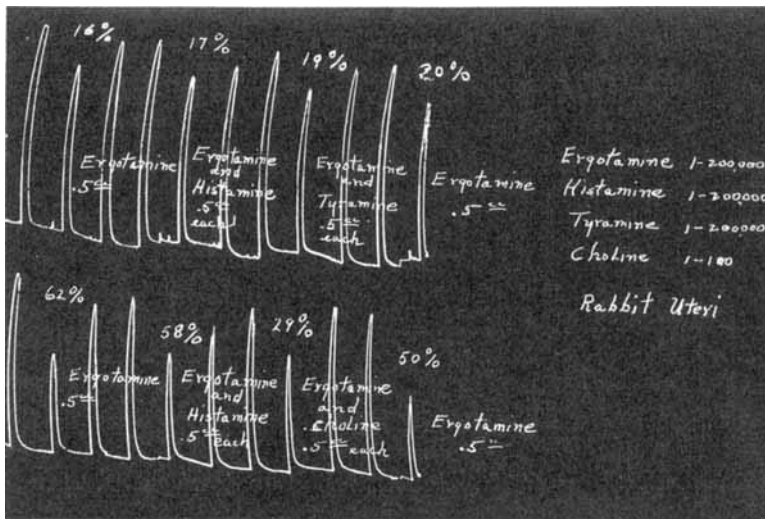 16%
17%
19%
20%
Ergotamine
.5cc
Ergotamine
and
Histamine
.5cc
each
Ergotamine
and
Tyramine
.5cc
each
Ergotamine
.5cc
Ergotamine 1-200,000
Histamine 1-200,000
Tyramine 1-200,000
Choline 1-100
Rabbit Uteri
62%
58%
29%
50%
Ergotamine
.5cc
Ergotamine
and
Histamine
.5cc each
Ergotamine
and
Choline
.5cc each
Ergotamine
.5cc